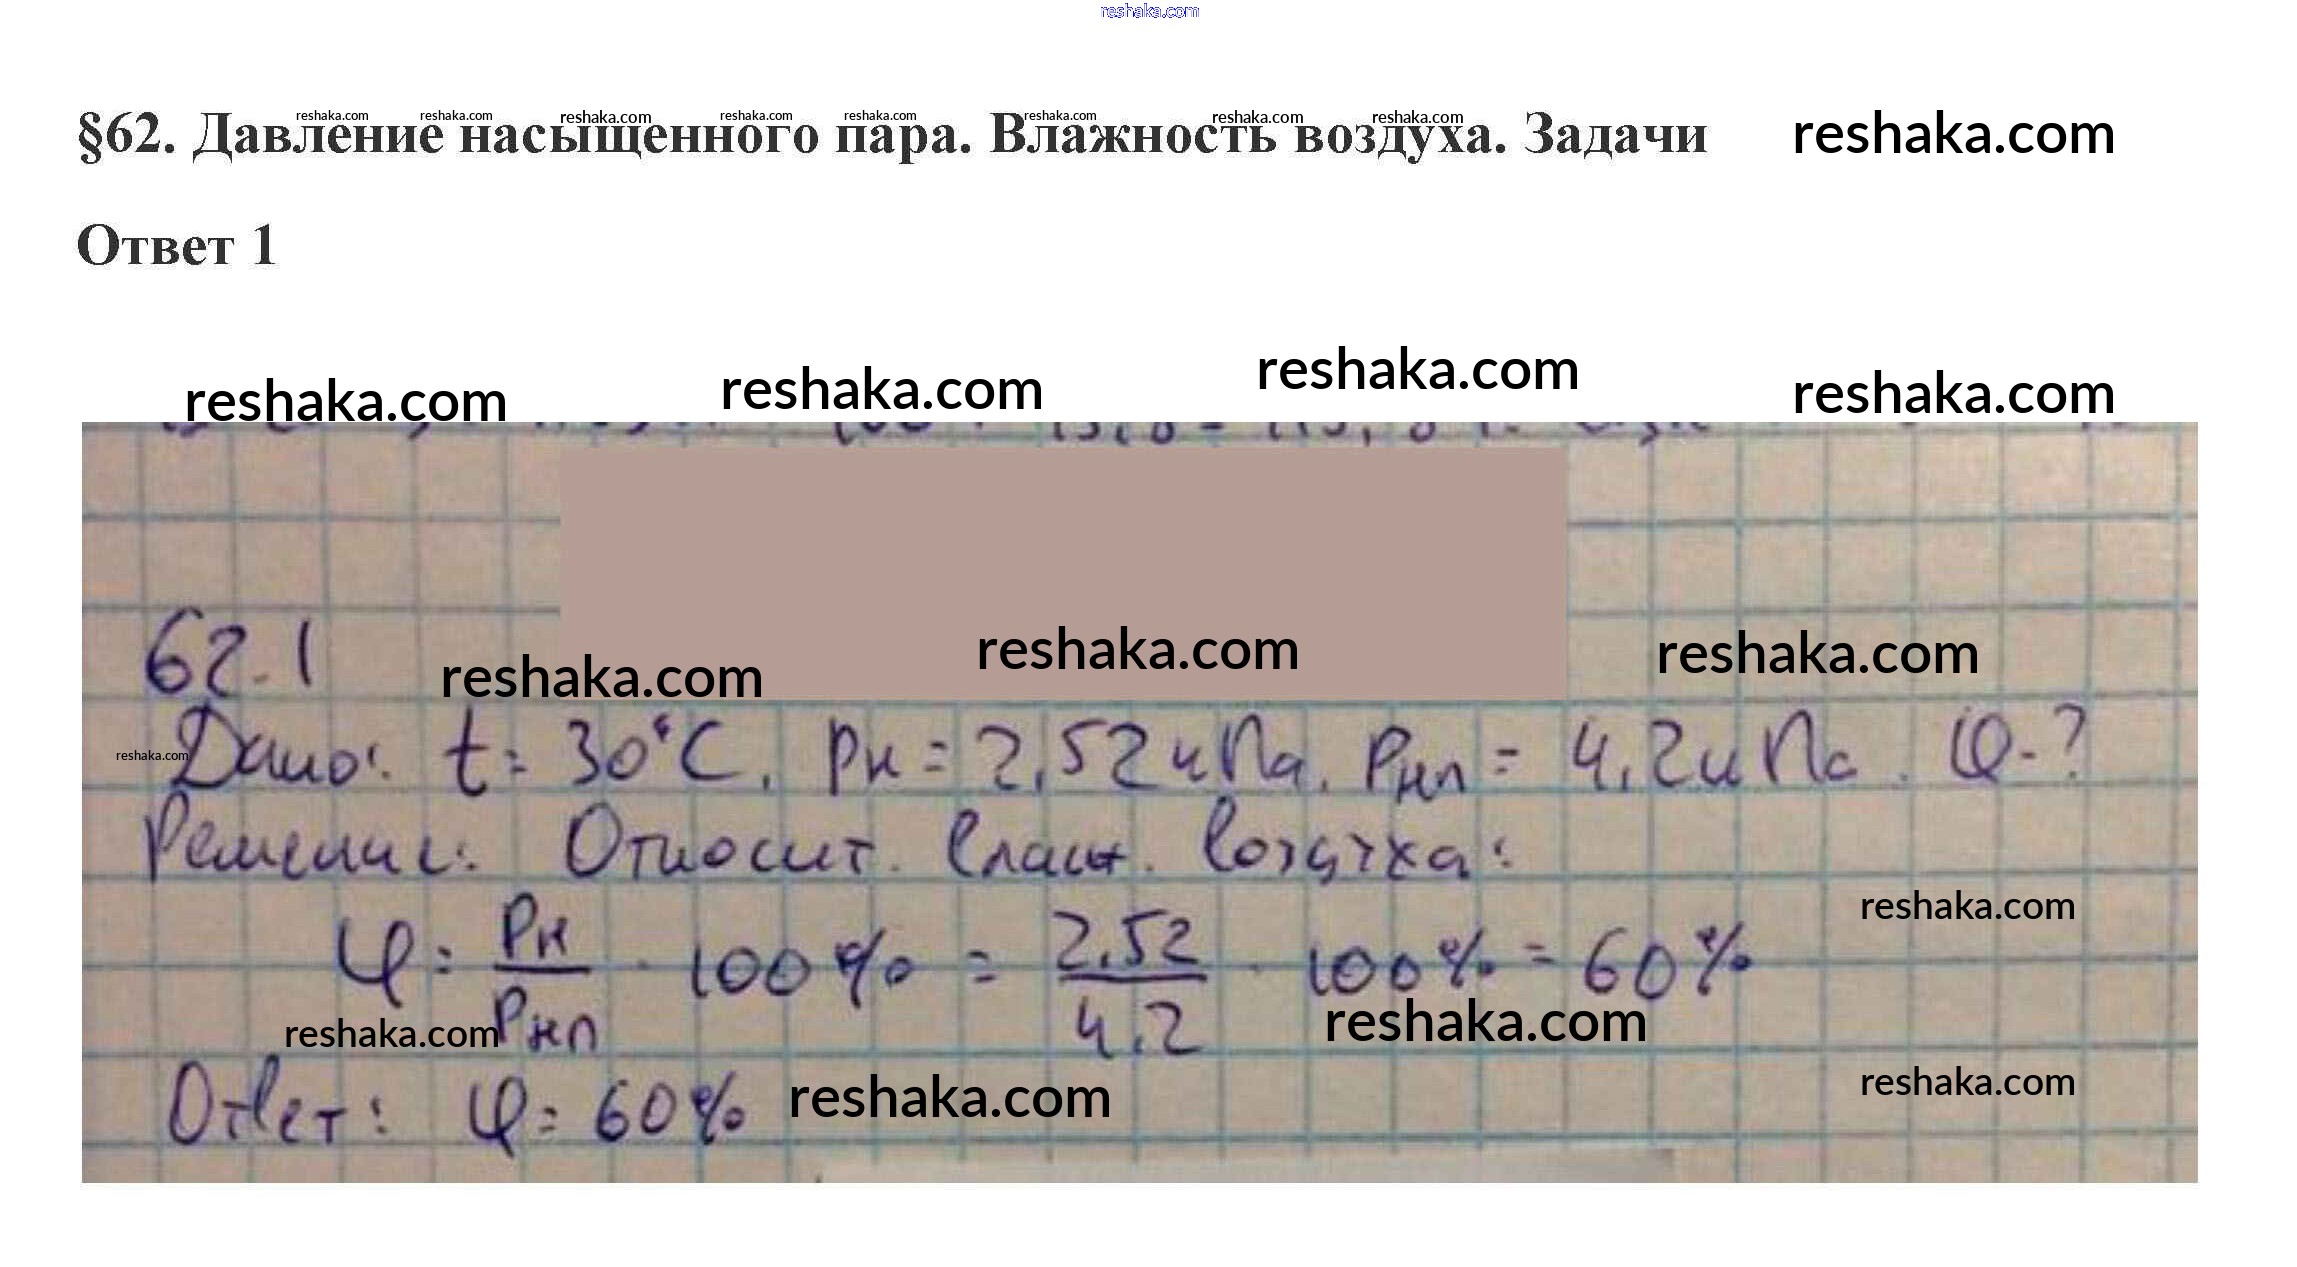 reshaka.com
§62. Давление насыщенного пара. Влажность воздуха. Задачи reshaka.com
reshaka.com reshaka.com reshaka.com reshaka.com reshaka.com reshaka.com reshaka.com reshaka.com
Ответ 1
reshaka.com reshaka.com reshaka.com reshaka.com
62.1
reshaka.com reshaka.com reshaka.com
Дано: t = 30°C, Pн = 2,52 кПа, Pнп = 4,2 кПа. φ-?
reshaka.com
Решение: Относит. влажн. воздуха:
reshaka.com
φ = Pн/Pнп · 100% = 2,52/4,2 · 100% = 60%
reshaka.com reshaka.com
Ответ: φ = 60%
reshaka.com reshaka.com